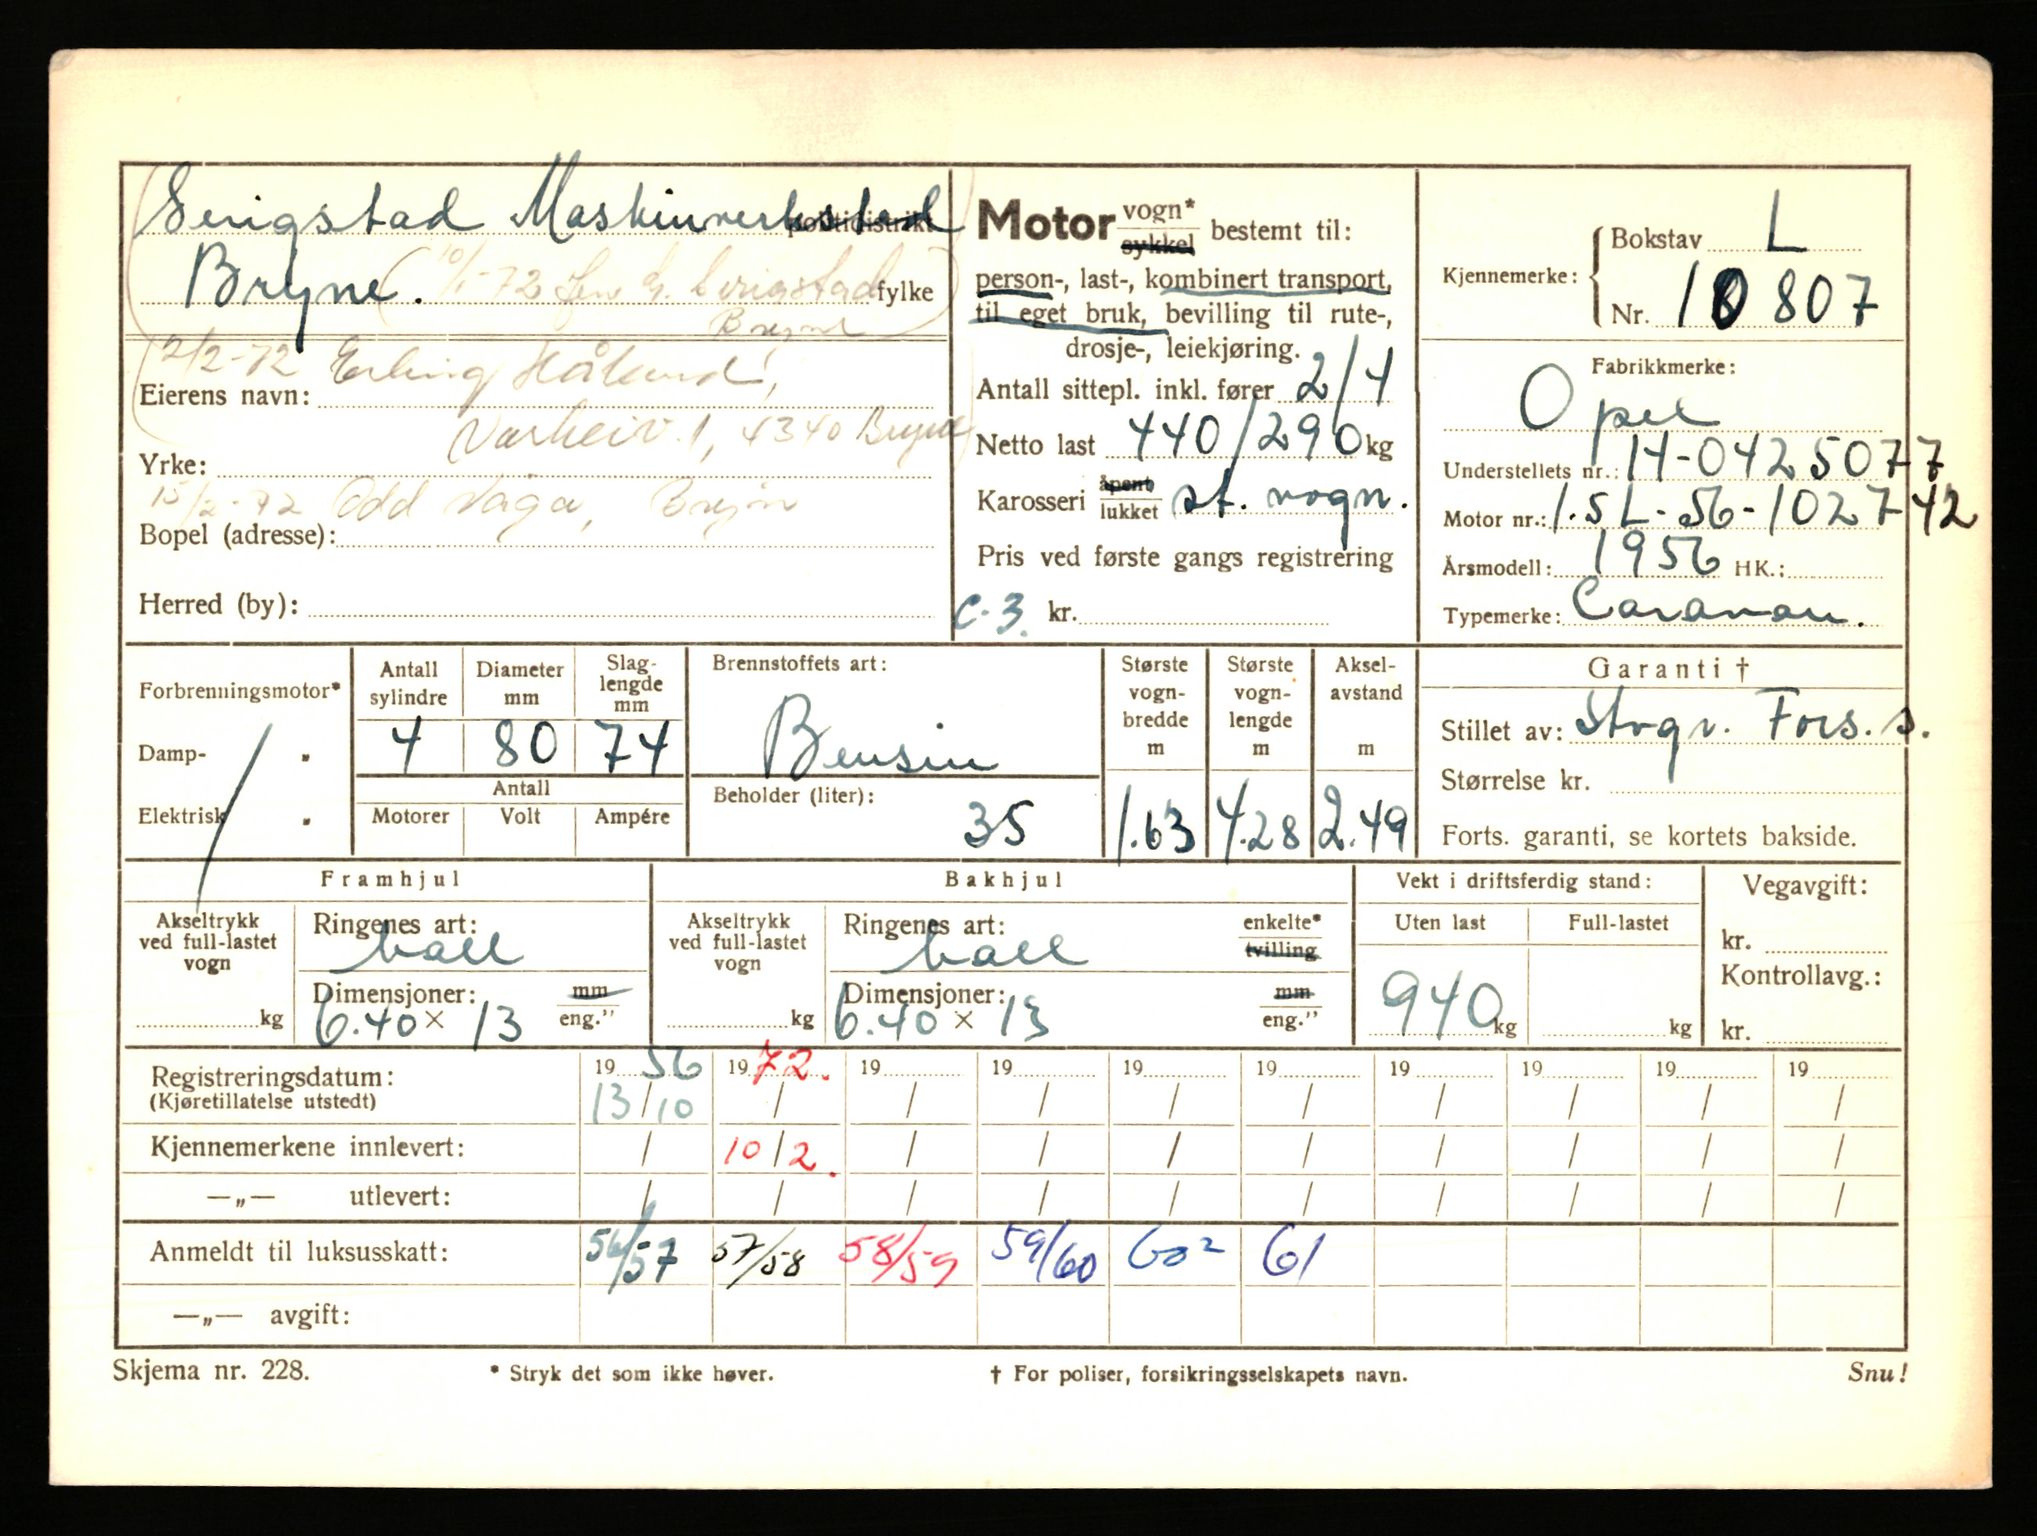 Serigstad Maskinverksted politidistrikt
Bryne. (10/1-72 Jen G. Serigstad fylke
Bryne)
12/2-72 Erling Håland,
Eierens navn:
Varheiv. 1, 4340 Bryne
Yrke:
15/2-72 Odd Våga, Bryne
Bopel (adresse):
Herred (by):
Motor vogn* sykkel bestemt til:
person-, last-, kombinert transport,
til eget bruk, bevilling til rute-,
drosje-, leiekjøring.
Antall sittepl. inkl. fører 2/4
Netto last 440/290 kg
Karosseri åpent lukket st. vogn.
Pris ved første gangs registrering
C-3. kr.
Kjennemerke: Bokstav L
Nr. 10807
Fabrikkmerke:
Opel
Understellets nr.: 14-0425077
Motor nr.: 1.5L-56-102742
Årsmodell: 1956 HK.:
Typemerke: Caravan.
Forbrenningsmotor*
Damp- "
Elektrisk "
Antall sylindre Diameter mm Slaglengde mm
4 80 74
Antall
Motorer Volt Ampére
Brennstoffets art:
Bensin
Beholder (liter):
35
Største vognbredde m
1.63
Største vognlengde m
4.28
Akselavstand m
2.49
Garanti †
Stillet av: Storgr. Fors. s.
Størrelse kr.
Forts. garanti, se kortets bakside.
Framhjul
Akseltrykk ved full-lastet vogn
kg
Ringenes art:
ball
Dimensjoner: mm eng."
6.40 × 13
Bakhjul
Akseltrykk ved full-lastet vogn
kg
Ringenes art: enkelte* tvilling
ball
Dimensjoner: mm eng."
6.40 × 13
Vekt i driftsferdig stand:
Uten last Full-lastet
940 kg kg
Vegavgift:
kr.
Kontrollavg.:
kr.
Registreringsdatum: 19 56 19 72. 19 19 19 19 19 19 19 19
(Kjøretillatelse utstedt) 13/10 / / / / / / / / /
Kjennemerkene innlevert: / 10/2. / / / / / / / /
—„— utlevert: / / / / / / / / / /
Anmeldt til luksusskatt: 56/57 57/58 58/59 59/60 60² 61
—„— avgift:
Skjema nr. 228. * Stryk det som ikke høver. † For poliser, forsikringsselskapets navn. Snu!